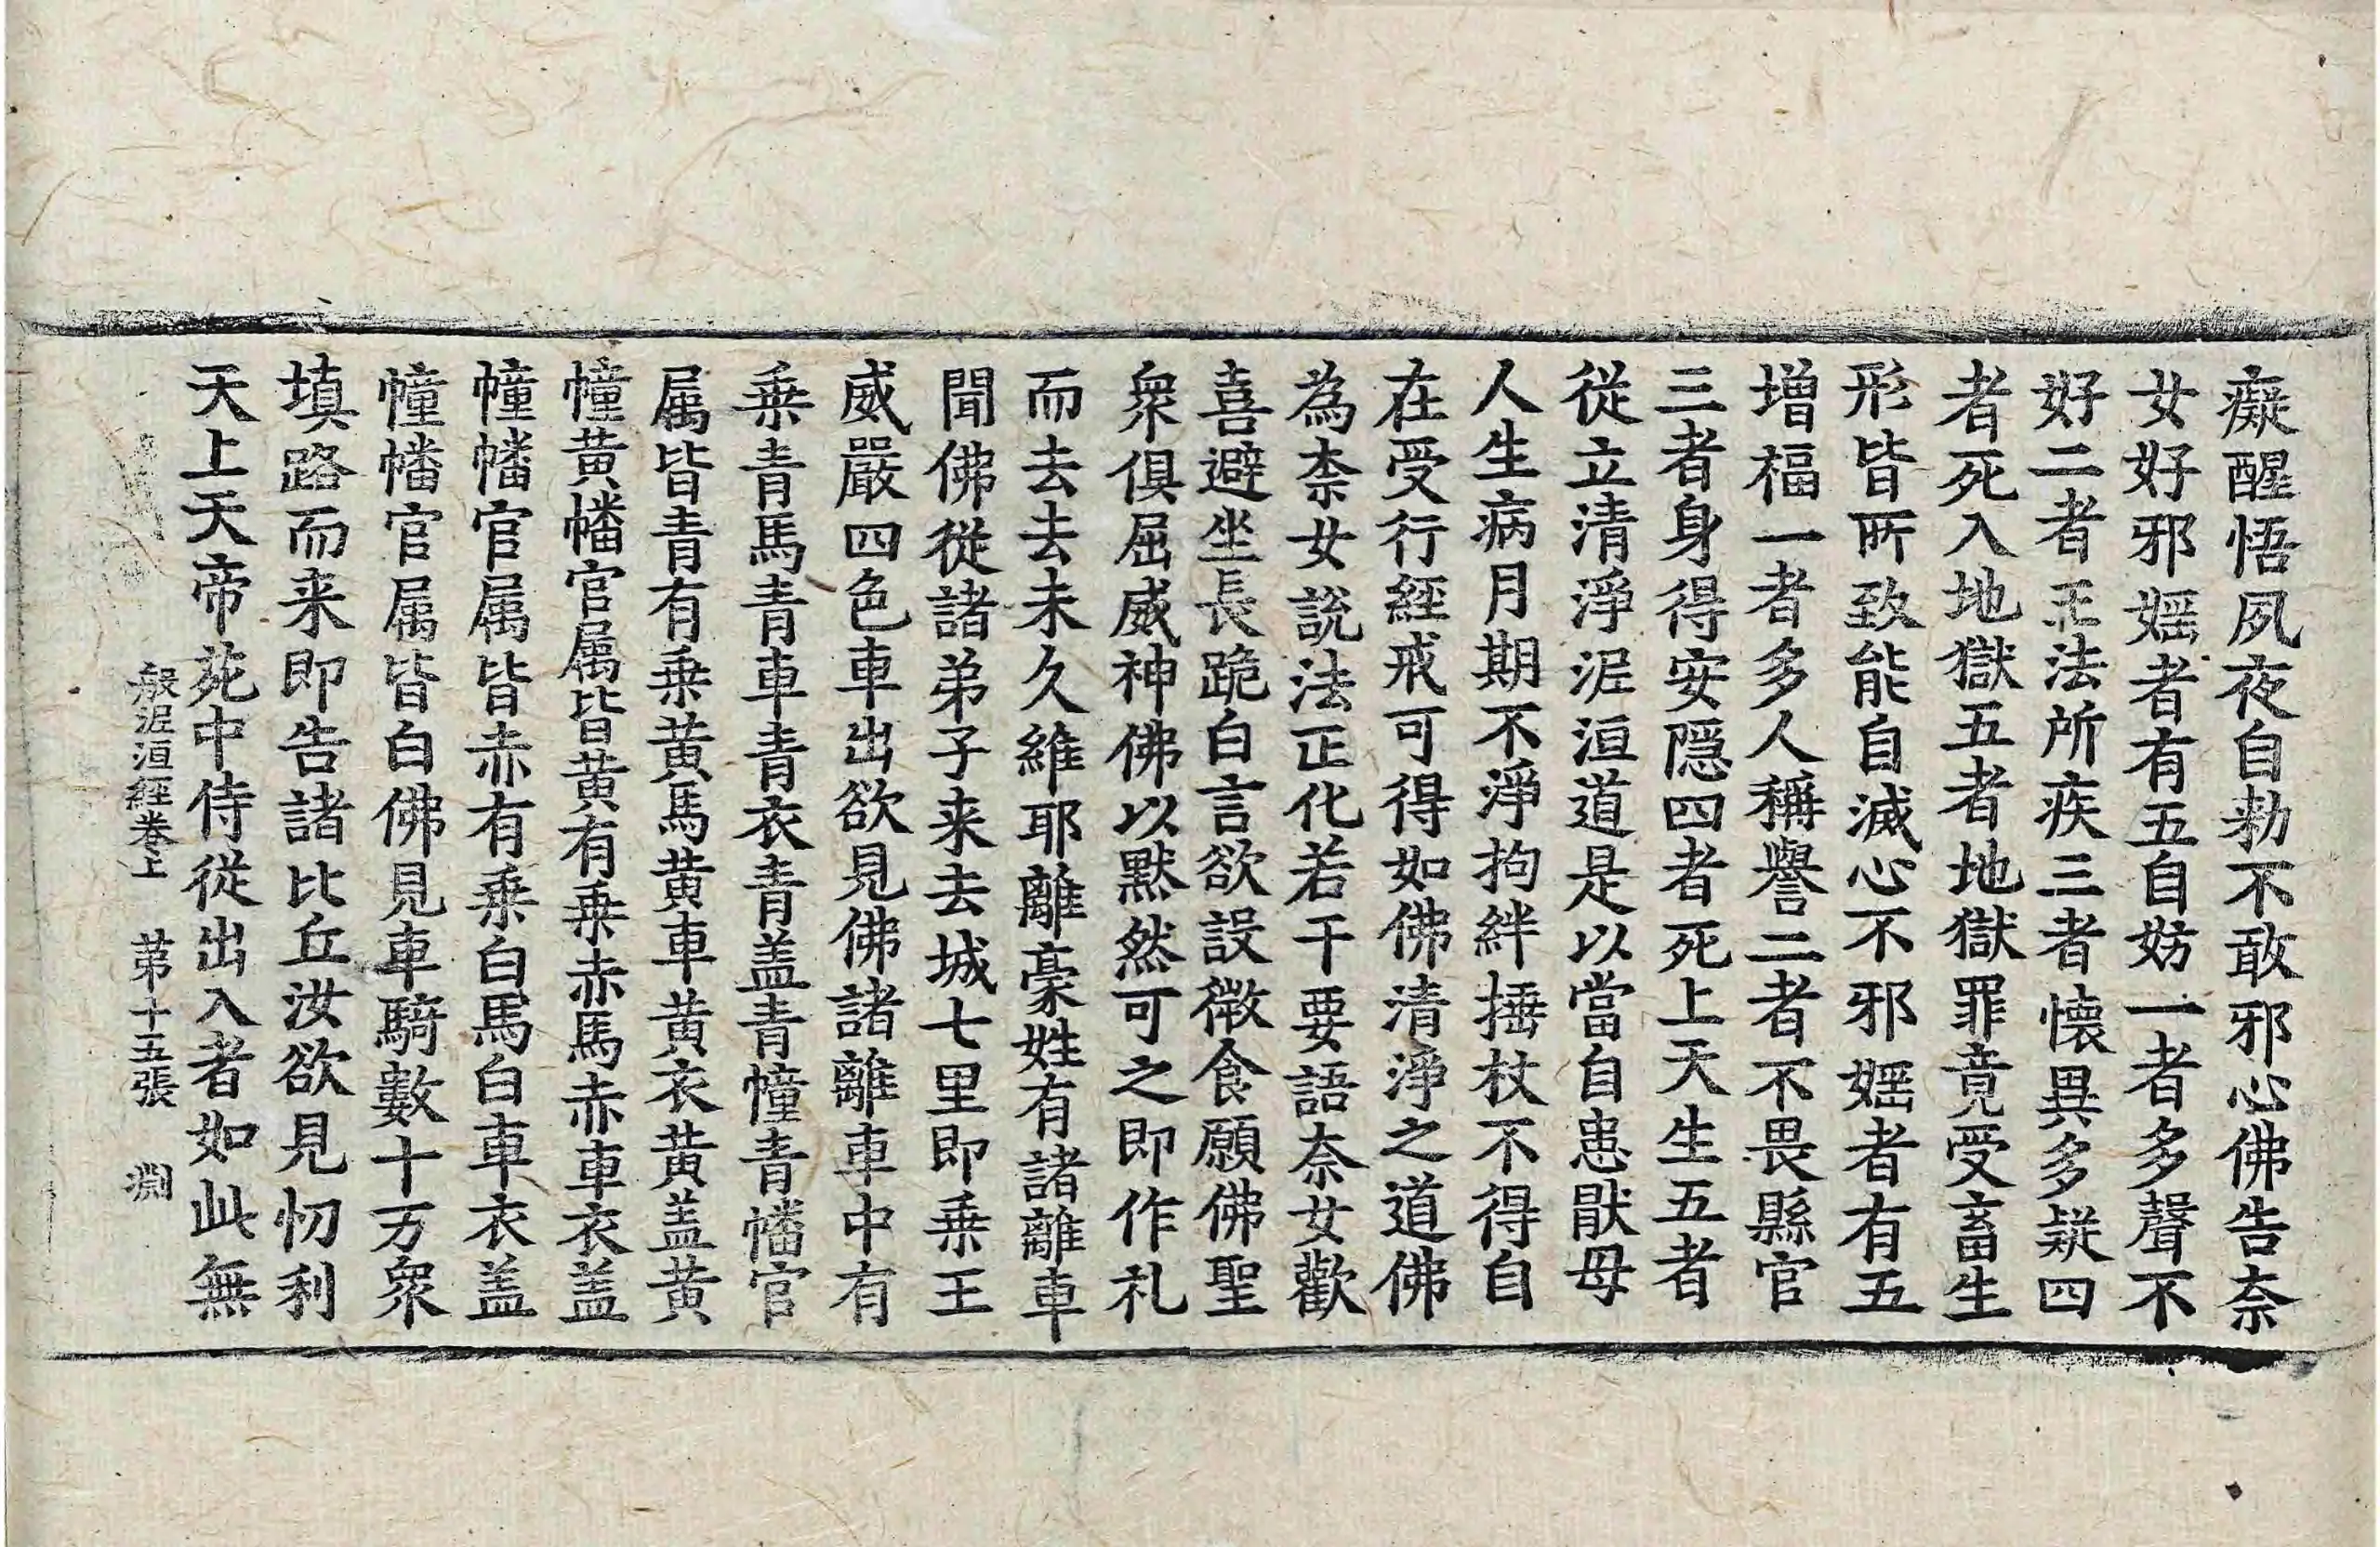 癡醒悟夙夜自勑不敢邪心佛告奈
女好邪婬者有五自妨一者多聲不
好二者王法所疾三者懷異多疑四
者死入地獄五者地獄罪竟受畜生
形皆所致能自滅心不邪婬者有五
增福一者多人稱譽二者不畏縣官
三者身得安隠四者死上天生五者
從立清淨泥洹道是以當自患猒母
人生病月期不淨拘絆捶杖不得自
在受行經戒可得如佛清淨之道佛
為柰女說法正化若干要語奈女歡
喜避坐長跪白言欲設微食願佛聖
衆俱屈威神佛以默然可之即作礼
而去去未久維耶離豪姓有諸離車
聞佛從諸弟子来去城七里即乗王
威嚴四色車出欲見佛諸離車中有
乗青馬青車青衣青盖青幢青幡官
属皆青有乗黄馬黄車黄衣黄盖黄
幢黄幡官属皆黄有乗赤馬赤車衣盖
幢幡官属皆赤有乗白馬白車衣盖
幢幡官属皆白佛見車騎數十万衆
填路而来即告諸比丘汝欲見忉利
天上天帝苑中侍從出入者如此無
般泥洹經卷上 第十五張 淵